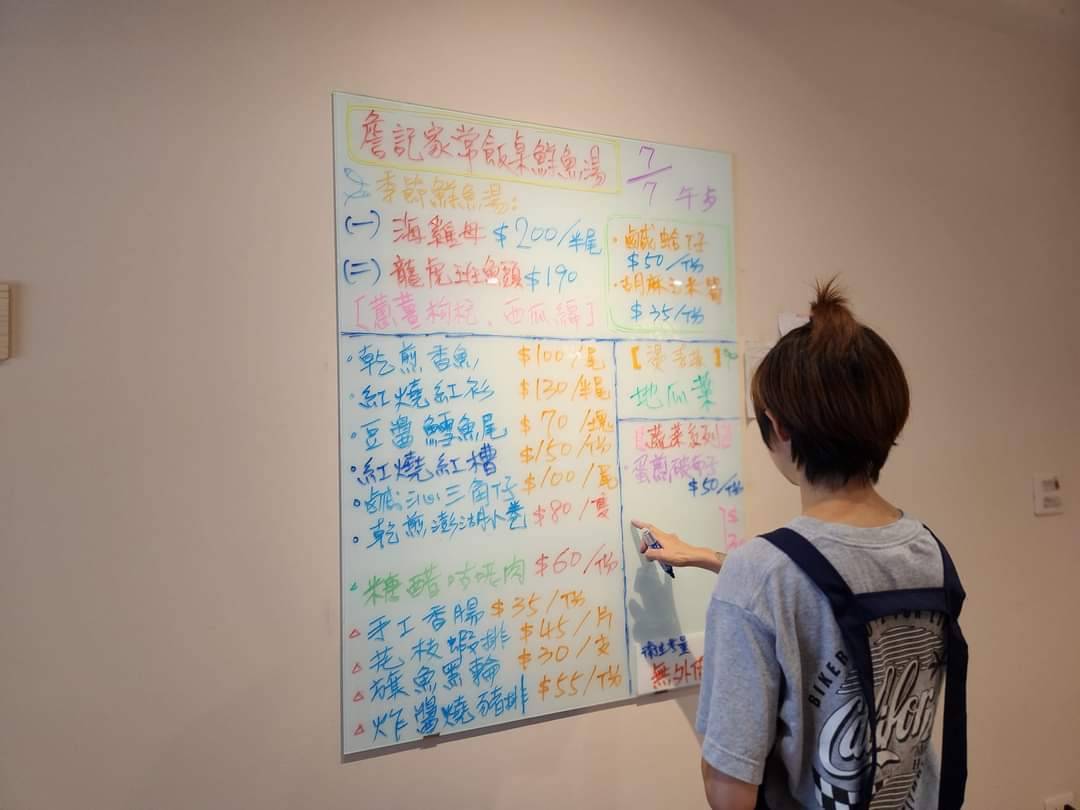 詹記家常飯桌鮮魚湯
7/7 午步
季節鮮魚湯:
(一) 海雞母 $200/半尾
(二) 龍虎班魚頭 $190
[蔥薑枸杞、西瓜綿]
·鹹蛤仔
$50/份
·胡麻玉米筍
$35/份
·乾煎香魚 $100/尾
·紅燒紅衫 $130/半尾
·豆醬鱈魚尾 $70/塊
·紅燒紅槽 $150/份
·鹹沁三角仔 $100/尾
·乾煎澎湖小卷 $80/隻
糖醋咕咾肉 $60/份
△手工香腸 $35/份
△花枝蝦排 $45/片
△旗魚黑輪 $30/支
△炸醬燒豬排 $55/份
地瓜葉
蔬菜系列
·蛋煎破布子
$50/份
衛生考量
無外
BIKER
Califor